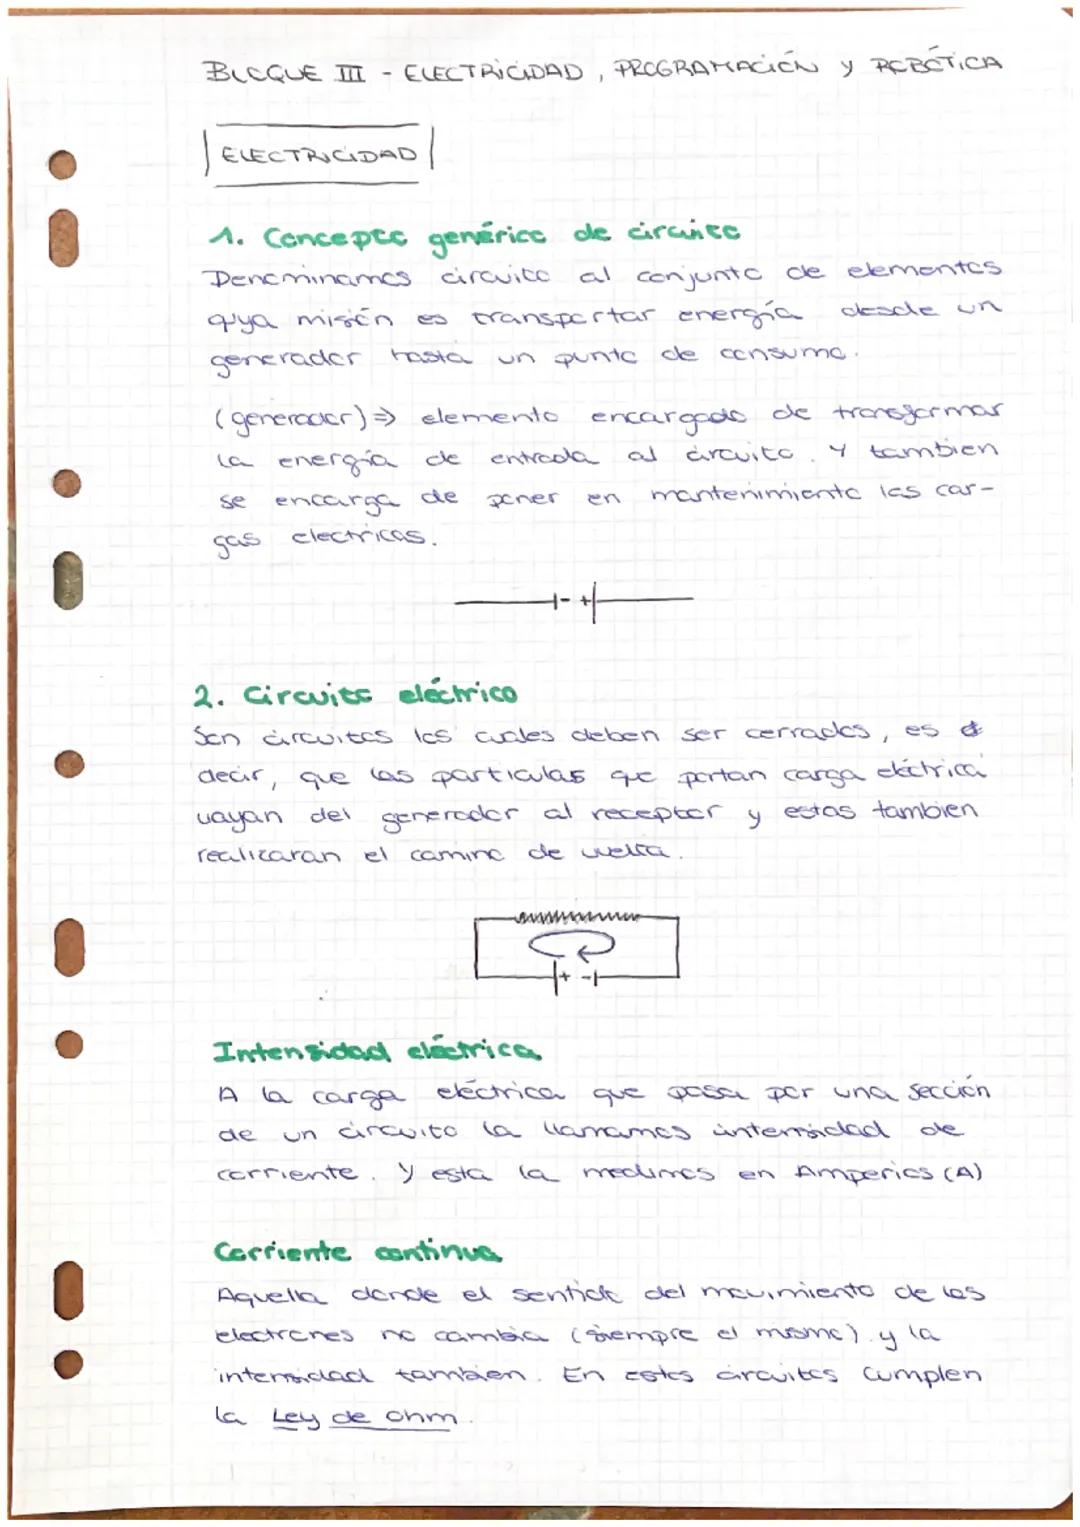 BLOQUE III - ELECTRICIDAD, PROGRAMACIÓN y ROBÓTICA
ELECTRICIDAD
1. Concepto genérico de circuito
Denominamos circuito al conjunto de elementos
cuya misión es transportar energía desde un
generador hasta un punto de consumo.
(generador) ⇒ elemento encargado de transformar
la energía de entrada al circuito. Y tambien
se encarga de poner en mantenimiento las car-
gas electricas.
- +
2. Circuito eléctrico
Son circuitos los cuales deben ser cerrados, es
decir, que las particulas que portan carga eléctrica
vayan del generador al receptor y estas tambien
realizaran el camino de vuelta.
+ -
Intensidad eléctrica
A la carga eléctrica que pasa por una sección
de un circuito la llamamos intensidad de
corriente. Y esta la medimos en Amperios (A)
Corriente continua
Aquella donde el sentido del movimiento de los
electrones no cambia (siempre el mismo) y la
intensidad tambien. En estos circuitos cumplen
la Ley de Ohm.